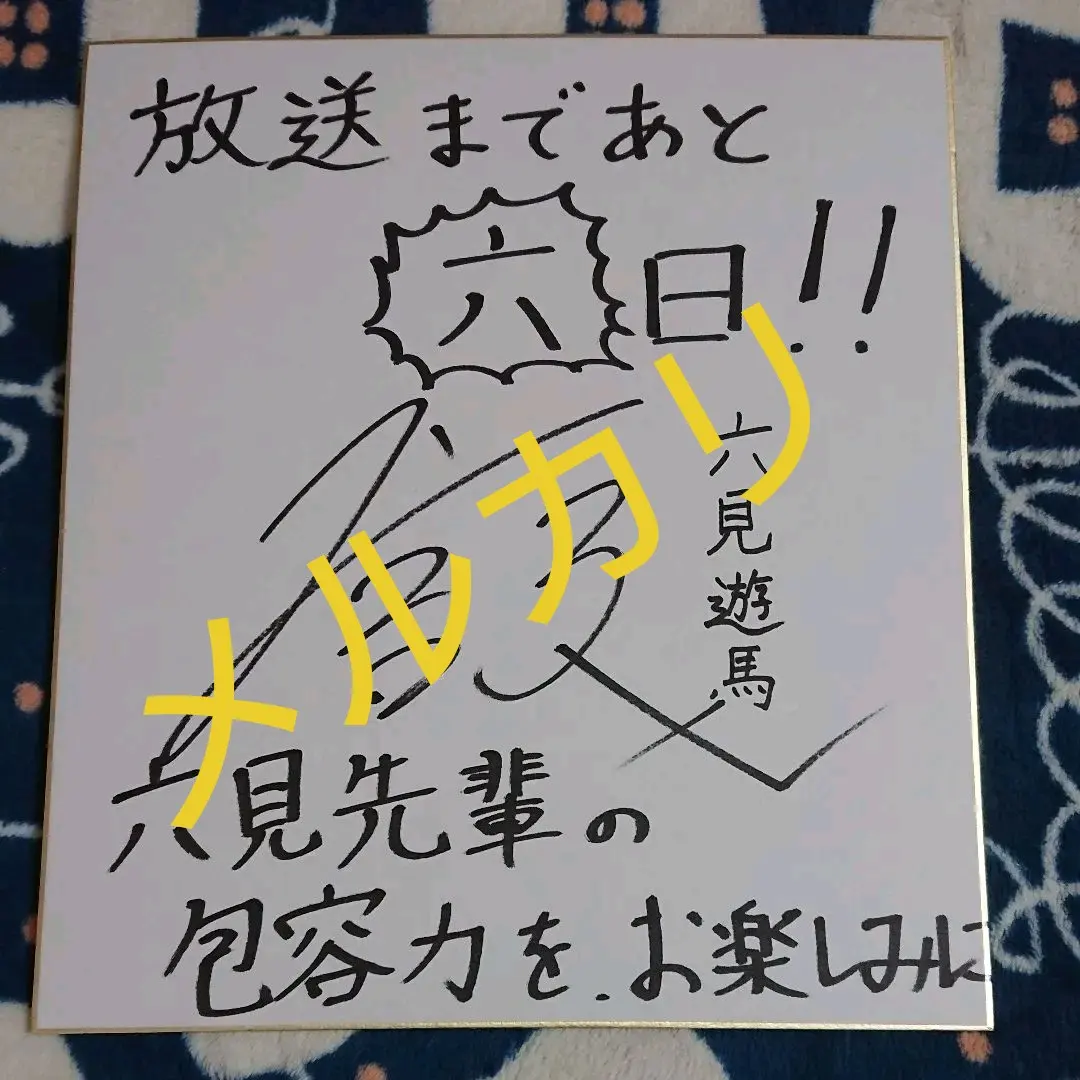 放送まであと
六日!!
六見遊馬
メルカリ
六見先輩の
包容力を.お楽しみに